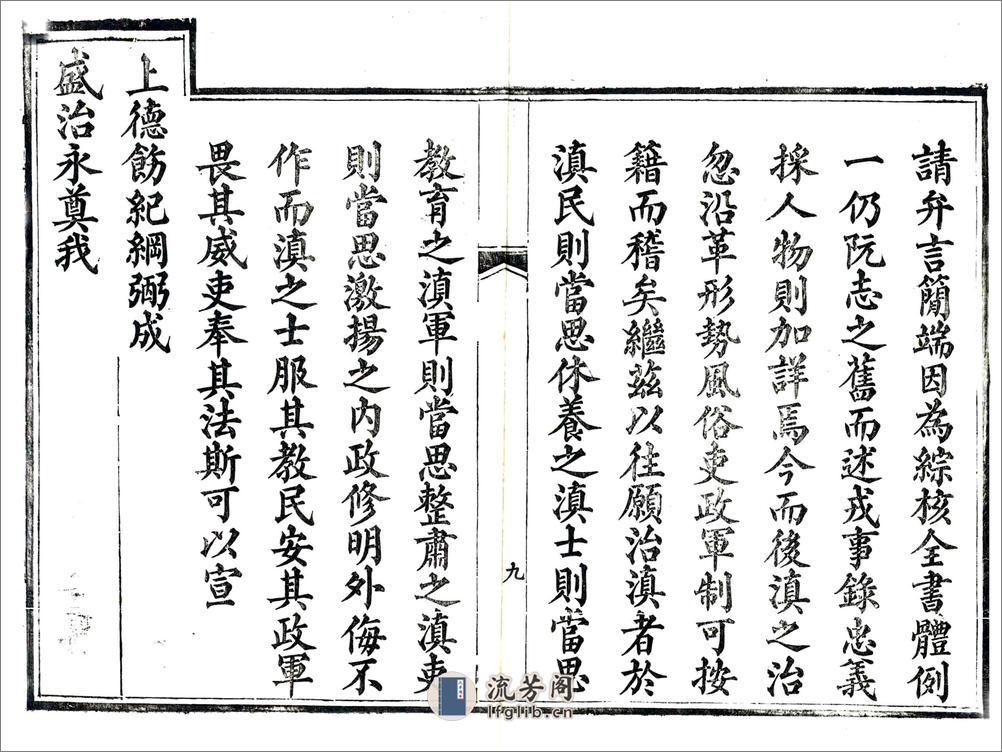 請弁言簡端因為綜核全書體例
一仍阮志之舊而述戎事錄忠義
採人物則加詳焉今而後滇之治
忽沿革形勢風俗吏政軍制可按
籍而稽矣繼茲以往願治滇者於
滇民則當思休養之滇士則當思
九
教育之滇軍則當思整肅之滇吏
則當思激揚之內政修明外侮不
作而滇之士服其教民安其政軍
畏其威吏奉其法斯可以宣
上德飭紀綱弼成
盛治永奠我
流芳阁
lfglib.cn